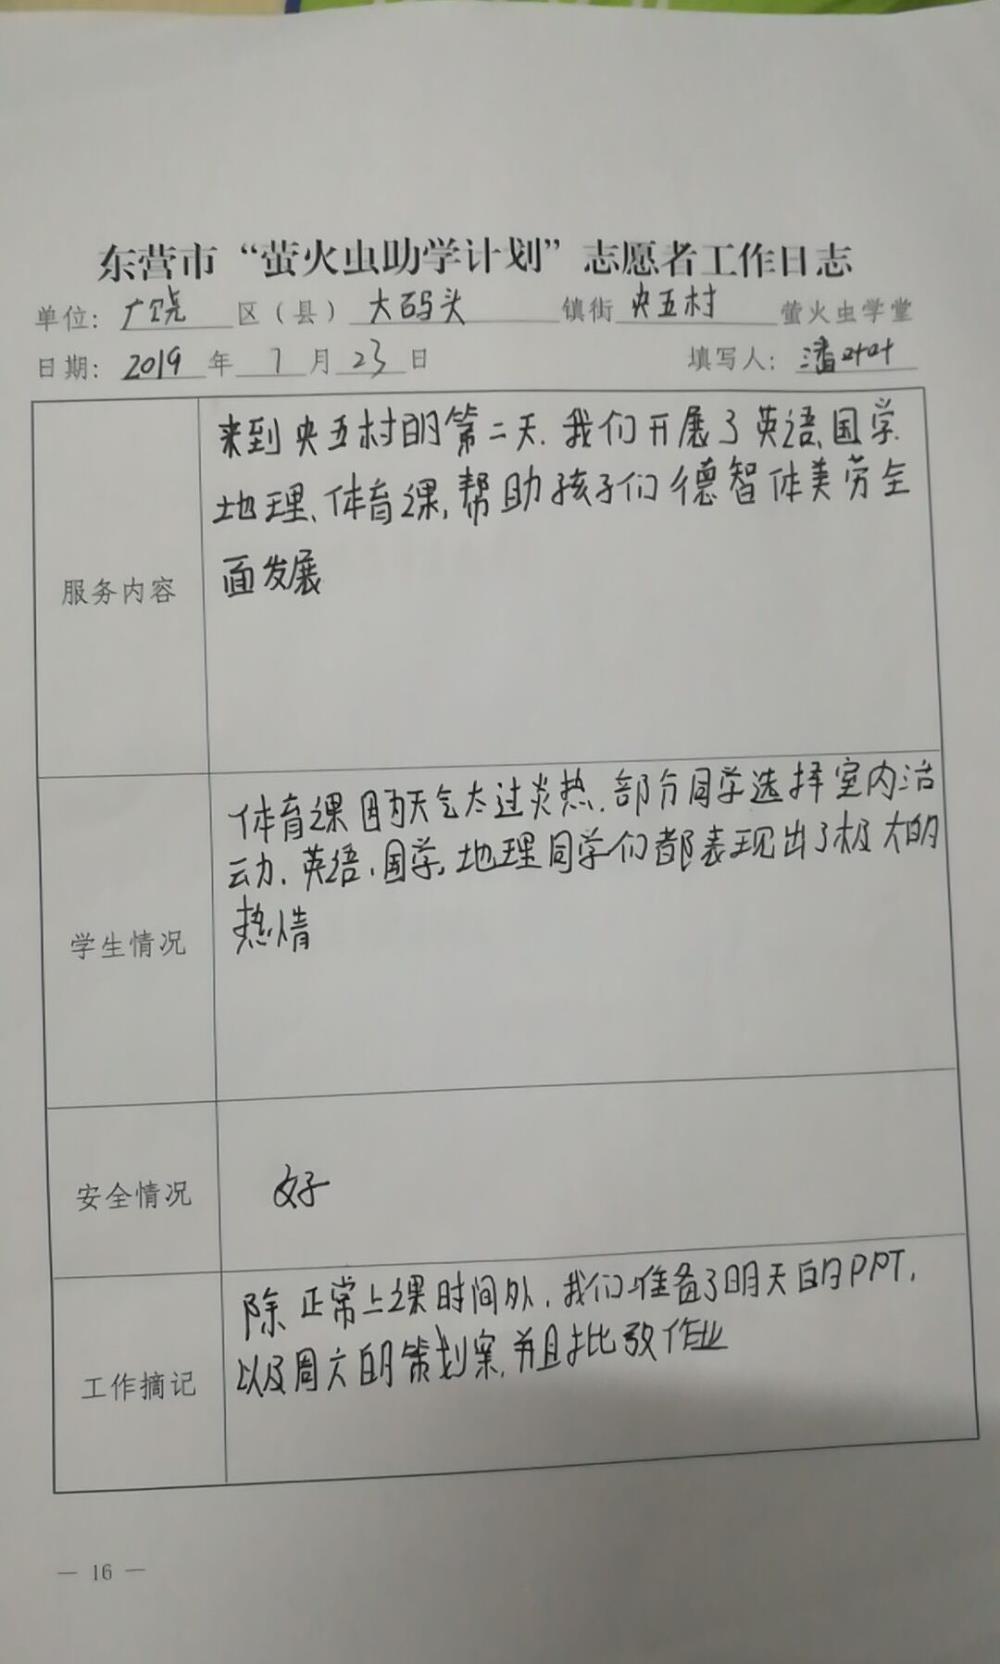 东营市“萤火虫助学计划”志愿者工作日志
单位：广饶 区（县） 大码头 镇街 央五村 萤火虫学堂
日期：2019 年 7 月 23 日 填写人：潘叶叶
来到央五村的第二天.我们开展了英语、国学.
地理、体育课,帮助孩子们德智体美劳全
面发展
服务内容
体育课因为天气太过炎热.部分同学选择室内活
动.英语、国学、地理同学们都表现出了极大的
热情
学生情况
安全情况 好
除正常上课时间外,我们准备了明天的PPT,
以及周六的策划案,并且批改作业
工作摘记
— 16 —